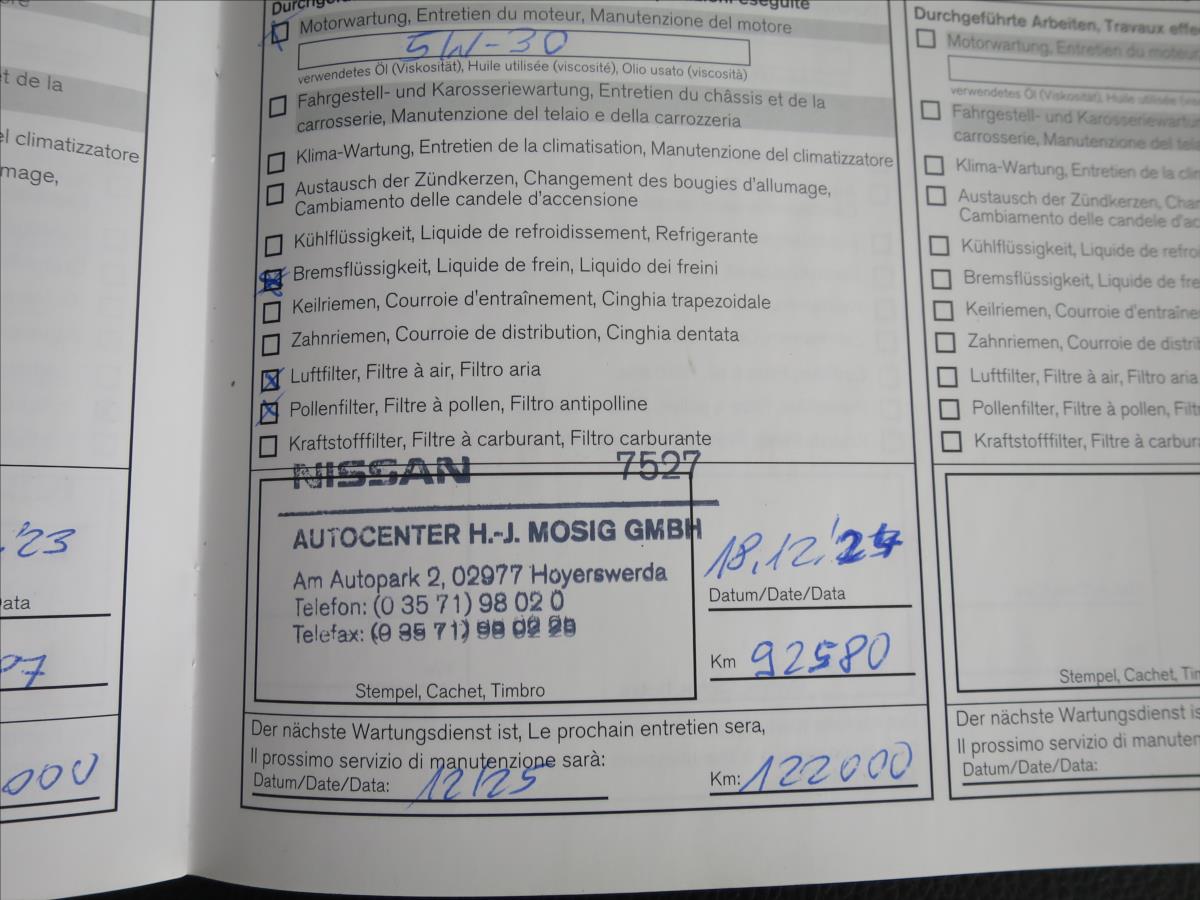 et de la
el climatizzatore
mage,
.'23
Data
97
000
Motorwartung, Entretien du moteur, Manutenzione del motore
5W-30
verwendetes Öl (Viskosität), Huile utilisée (viscosité), Olio usato (viscosità)
Fahrgestell- und Karosseriewartung, Entretien du châssis et de la
carrosserie, Manutenzione del telaio e della carrozzeria
Klima-Wartung, Entretien de la climatisation, Manutenzione del climatizzatore
Austausch der Zündkerzen, Changement des bougies d'allumage,
Cambiamento delle candele d'accensione
Kühlflüssigkeit, Liquide de refroidissement, Refrigerante
Bremsflüssigkeit, Liquide de frein, Liquido dei freini
Keilriemen, Courroie d'entraînement, Cinghia trapezoidale
Zahnriemen, Courroie de distribution, Cinghia dentata
Luftfilter, Filtre à air, Filtro aria
Pollenfilter, Filtre à pollen, Filtro antipolline
Kraftstofffilter, Filtre à carburant, Filtro carburante
NISSAN 7527
AUTOCENTER H.-J. MOSIG GMBH
Am Autopark 2, 02977 Hoyerswerda
Telefon: (0 35 71) 98 02 0
Telefax: (0 35 71) 98 02 25
Stempel, Cachet, Timbro
18.12.'24
Datum/Date/Data
Km 92580
Der nächste Wartungsdienst ist, Le prochain entretien sera,
Il prossimo servizio di manutenzione sarà:
Datum/Date/Data: 12/25
Km: 122000
Durchgeführte Arbeiten, Travaux effe
Motorwartung, Entretien du moteur
verwendetes Öl (Viskosität), Huile utilisée
Fahrgestell- und Karosseriewartun
carrosserie, Manutenzione del tela
Klima-Wartung, Entretien de la clim
Austausch der Zündkerzen, Chan
Cambiamento delle candele d'ac
Kühlflüssigkeit, Liquide de refroi
Bremsflüssigkeit, Liquide de fre
Keilriemen, Courroie d'entraîne
Zahnriemen, Courroie de distri
Luftfilter, Filtre à air, Filtro aria
Pollenfilter, Filtre à pollen, Filt
Kraftstofffilter, Filtre à carbur
Stempel, Cachet, Tim
Der nächste Wartungsdienst is
Il prossimo servizio di manuten
Datum/Date/Data: